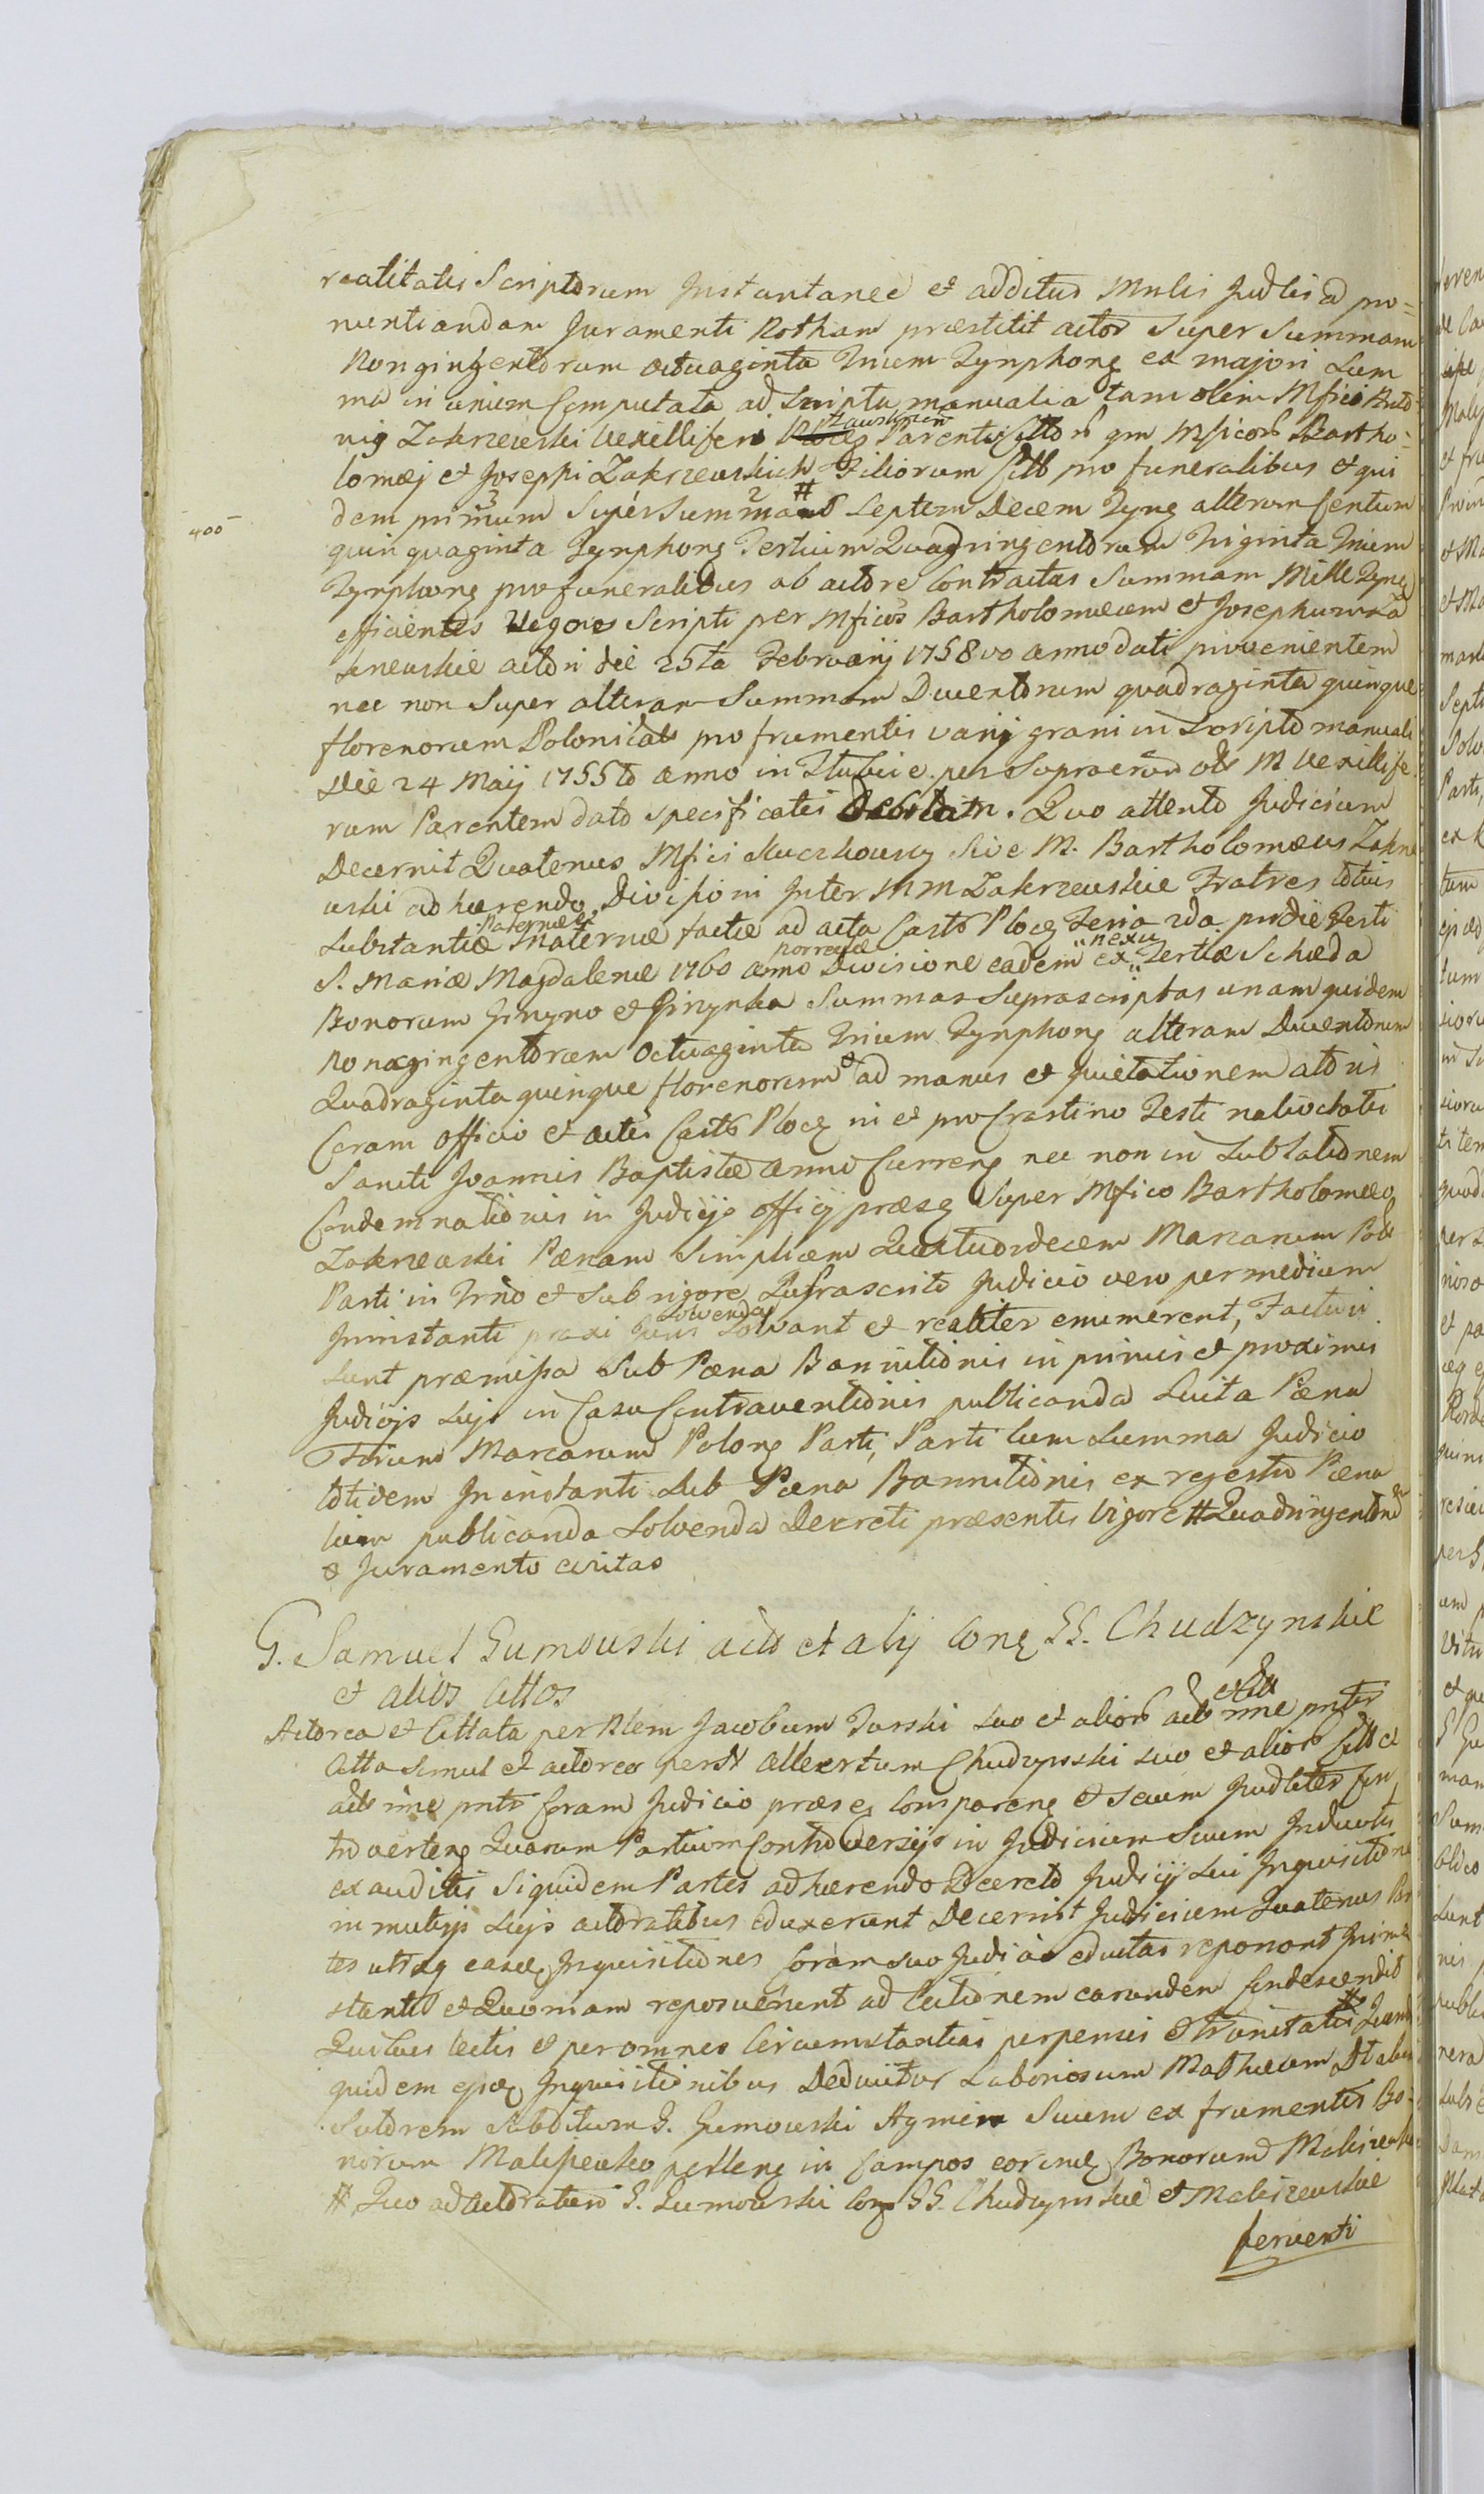 realitatis Scriptorum Instantanee et additus Mnlis Judlis ad pro=
nuntiandam Juramenti Rotham præstitit actor Super Summam
Nongingentorum octuaginta Trium Tynphonꝫ ex majori Sum
ma in unum Computata ad Scripta manualia tam olim Mfici Anto
nij Zakrzewski Vexilliferi Parentis Cittor qm Mficor Bartho=
lomæj et Josephi Zakrzewskich Filiorum Citt pro funeralibus et qui
dem primum Super Summam # Septem Decem Tynꝫ alterum Centum
400
quinquaginta Tynphonꝫ Tertium Quadringentorum Triginta Trium
Tynphonꝫ pro funeralibus ab actore Contractas Summam Mille Tynꝫ
efficientes Vigore Scripti per Mficos Bartholomæum et Josephum Za
krzewskie actori die 25ta Februarij 1758vo anno dati provenientem
nec non Super alteram Summam Ducentorum quadraginta quinque
florenorum Polonical pro frumentis varij grani in Scripto manuali
die 24 Maij 1755to anno in per M Vexillife
rum Parentem dato specificatis Debitam. Quo attento Judicium
Decernit Quatenus Mfici sive M. Bartholomæus Zakrze
wski adhærendo Divisioni Inter MM Zakrzewskie Fratres totius
Substantiæ Paternæ et Maternæ factæ ad acta Castr Plocꝫ Feria 2da pridie Festi
S. Mariæ Magdalenæ 1760 anno porrectæ Divisione eadem ex nexu Tertiæ Scheda
Bonorum et Summas Suprascriptas unam quidem
Nonagingentorum Octuaginta Trium Tynphonꝫ alteram Ducentorum
Quadraginta quinque florenorum ad manus et quietationem actoris
Coram officio et actis Castr Plocꝫ in et pro Crastino Festi nativitatis
Sancti Joannis Baptistæ anno Currenꝫ nec non in Sublationem
Condemnationis in Judicijs officij præsꝫ Super Mfico Bartholomæo
Zakrzewski Pænam Simplicem Quatuordecem Marcarum Pol
Parti in Trno et Sub rigore Infrascrito Judicio vero per medium
Ininstanti praxi Juris Solvenda Solvant et realiter enumerent, Facturi
Sunt præmissa Sub Pæna Bannitionis in primis et proximis
Judicijs Sujs in Casu Contraventionis publicanda Luita Pæna
Trium Marcarum Polonꝫ Parti, Parti Cum Summa Judicio
totidem Ininstanti Sub Pæna Bannitionis ex regestro Pæna
lium publicanda Solvenda Decreti præsentis Vigore # Quadringentor
Juramento evitao
G. Samuel Gumowski acto et alij Conꝫ GG. Chudzynskie
et alios Cittos
Actorea et Cittata per Nlem Jacobum Turski suo et alior act et Citt nne pnter
Citta simul et actorea per N Albertum Chudzynski suo et alior Citt et
act nne pntr Coram Judicio præsꝫ Comparenꝫ et Secum Judliter Con
trovertenꝫ Quarum Partium Controversijs in Judicium Suum Inductis
ex auditis Siquidem Partes adhærendo Decreto Judicij Sui Inquisitiones
in mutujs Sujs actoratibus eduxerunt Decernit Judicium Quatenus Par
tes utræq easdꝫ Inquisitiones Coram suo Judicio eductas reponant Inin
stanti et Quoniam reposuerunt ad lectionem earundem Condescendit
Quibus lectis et per omnes Circumstantias perpensis et trutinatis #
quidem Inquisitionibus Deducitur Laboriosum Mathæum
Sutorem Subditum G. Gumowski Agmen Suum ex frumentis Bo=
norum Maliszewko pellenꝫ in Campos eorundꝫ Bonorum Maliszewko
# Quo ad actoratum G. Gumowski Conꝫ GG. Chudzynskie et Maliszewskie
ferventi